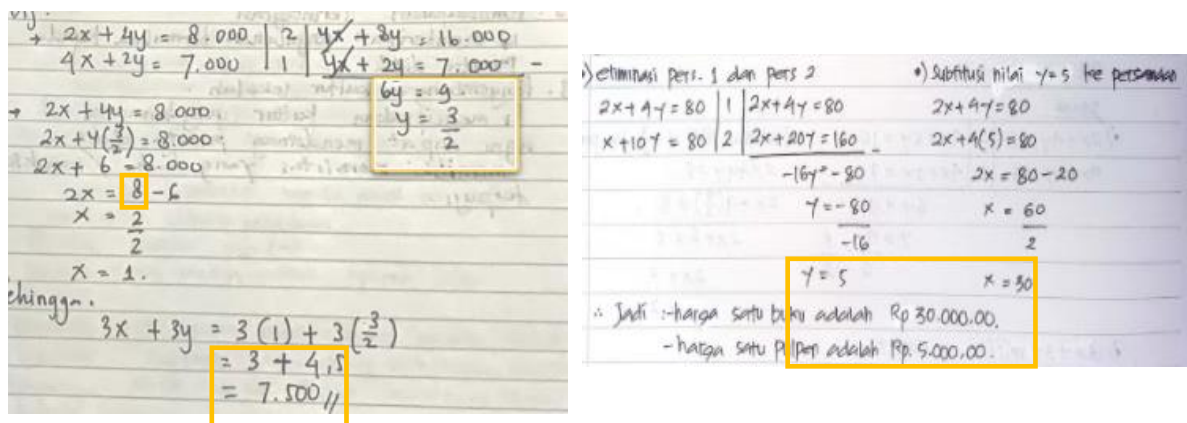 → 2x + 4y = 8.000 | 2 | 4x + 8y = 16.000
4x + 2y = 7.000 | 1 | 4x + 2y = 7.000 -
6y = 9
y = 3/2
→ 2x + 4y = 8.000
2x + 4(3/2) = 8.000
2x + 6 = 8.000
2x = 8 - 6
x = 2/2
x = 1.
ehingga.
3x + 3y = 3(1) + 3(3/2)
= 3 + 4,5
= 7.500 //
•) eliminasi pers. 1 dan pers 2
2x + 4y = 80 | 1 | 2x + 4y = 80
x + 10y = 80 | 2 | 2x + 20y = 160 -
-16y = -80
y = -80/-16
y = 5
•) Subtitusi nilai y = 5 ke persamaan
2x + 4y = 80
2x + 4(5) = 80
2x = 80 - 20
x = 60/2
x = 30
∴ Jadi :- harga satu buku adalah Rp 30.000.00.
- harga satu pulpen adalah Rp. 5.000,00.